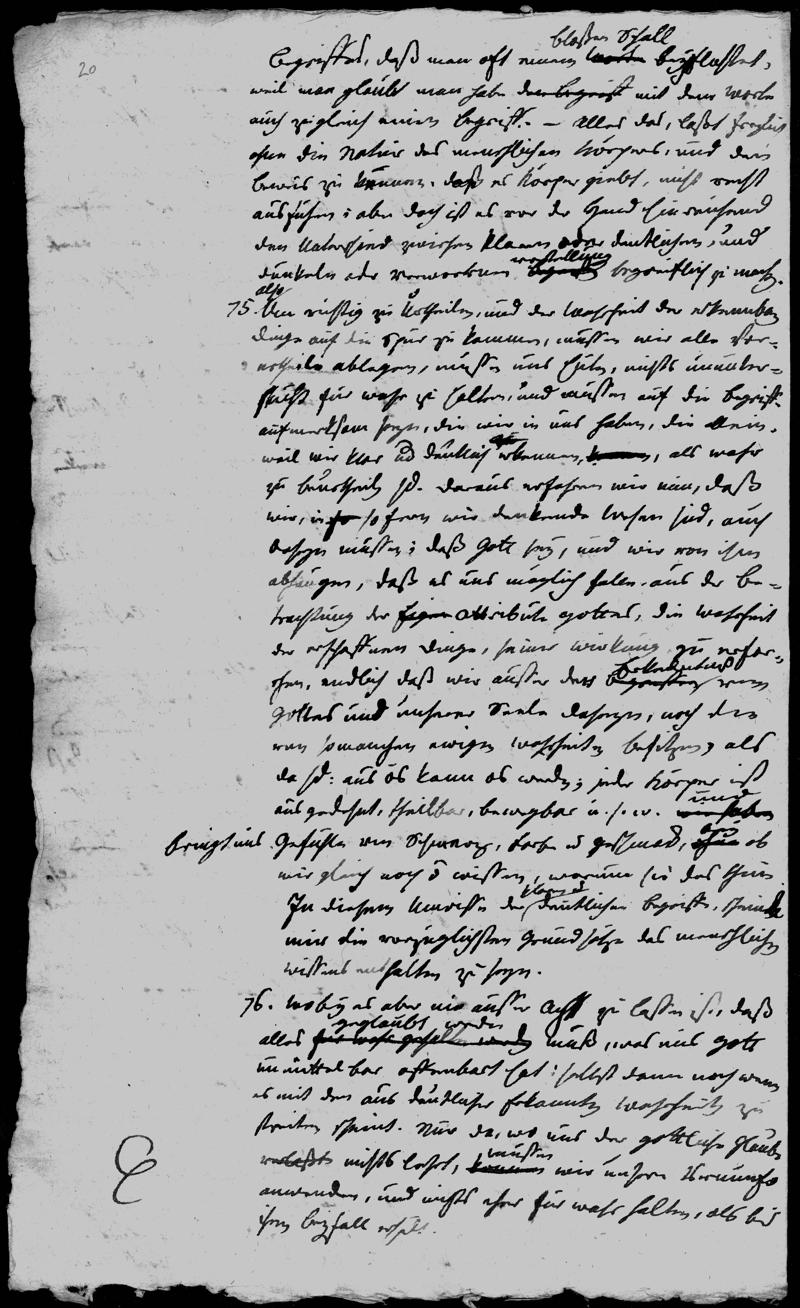 20
bloßen Schall
begriffes, daß man oft einem worte beypflichtet,
weil man glaubt man habe den begriff mit dem worte
auch zugleich einen begriff. – Alles das, läßt freylich
ohne die Natur des menschlichen Körpers, und den
beweis zu kennen, daß es Körper giebt, nicht recht
ausführen; aber doch ist es vor der Hand hinreichend
den Unterschied zwischen klaren oder deutlichen, und
vorstellung
dunkeln oder verworrenen begriffe begreiflich zu machen.
also
75. Um richtig zu Urtheilen, und der Wahrheit der erkennbaren
dinge auf die Spur zu kommen, müssen wir alle Vor-
urtheile ablegen, müssen uns hüten, nichts ununter-
sucht für wahr zu halten, und müssen auf die begriffe
aufmerksam seyn, die wir in uns haben, die allein,
weil wir klar und deutlich erkennen, als wahr
zu beurtheilen sd. Daraus erfahren wir nun, daß
wir, in so fern wir denkende Wesen sind, auch
daseyn müssen; daß Gott sey, und wir von ihm
abhängen, daß es uns möglich falle, aus der Be-
trachtung der Attribute gottes, die wahrheit
der erschaffenen dinge, seiner wirkung zu erfor-
schen, endlich daß wir ausser dem begriffen vom
Gottes und unserer Seele daseyn, noch den
von so manchen ewigen wahrheiten besitzen, als
da sd: aus 0s kann 0s werden; jeder Körper ist
und
ausgedehnt, theilbar, bewegbar u. s. w. wir haben
bringt uns Gefühle vom Schmerz, farbe und geschmack, ob
wir gleich noch 0 wissen, warum sie das thun
klaren und
In diesem Umrisse der deutlichen begriffe, scheinen
mir die vorzüglichsten Grundsätze des menschlichen
wissens enthalten zu seyn.
76. wobey es aber nie ausser Acht zu lassen ist, daß
geglaubt werden
alles für wahr gehalten werden muß, was uns gott
unmittelbar offenbart hat; selbst dann noch wenn
es mit den aus deutlicher Erkannten wahrheiten zu
streiten scheint. Nur da, wo uns der göttliche Glaube
müssen
nichts lehrt, können wir unsere Vernunft
anwenden, und nichts eher für wahr halten, als bis
ihren beyfall erhält.